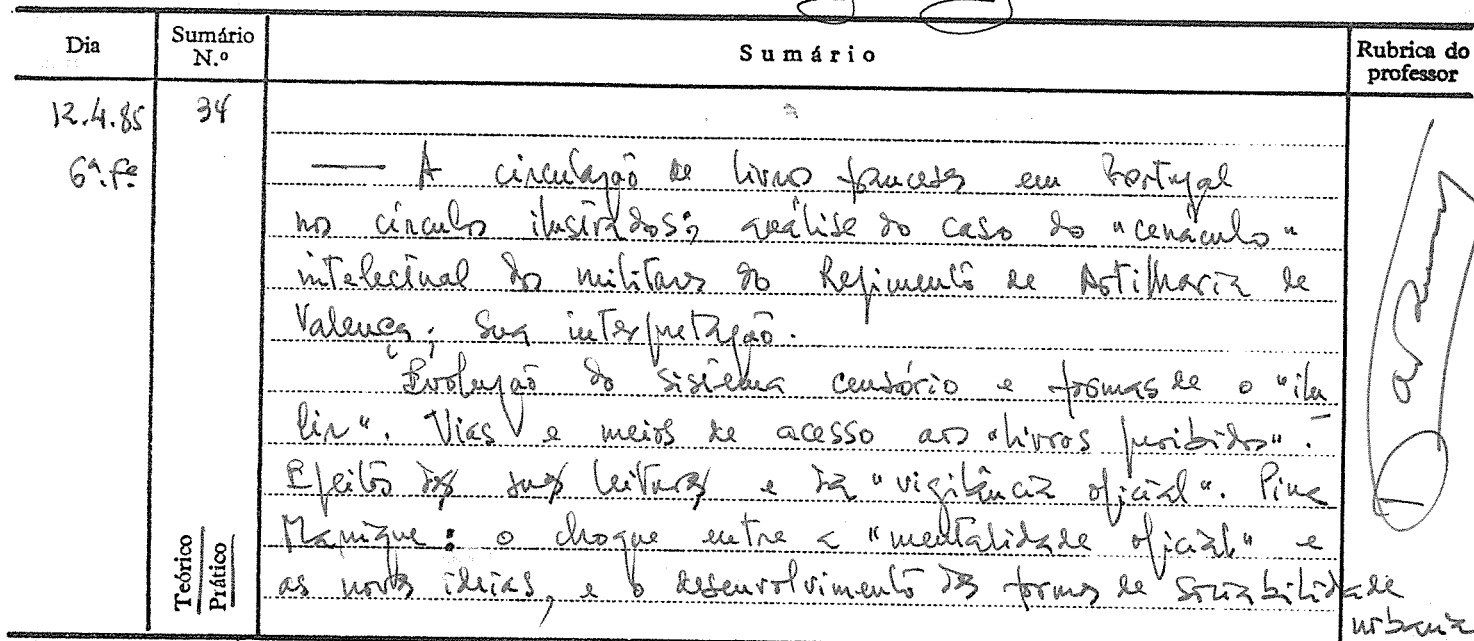 Dia Sumário N.º Sumário Rubrica do professor
12.4.85 34
6ª. fª.
— A circulação de livros franceses em Portugal
nos círculos ilustrados; análise do caso do "cenáculo"
intelectual dos militares do Regimento de Artilharia de
Valença; sua interpretação.
Evolução do sistema censório e formas de o "ilu
dir". Vias e meios de acesso aos "livros proibidos".
Efeitos das suas leituras e da "vigilância oficial". Pina
Manique: o choque entre a "mentalidade oficial" e
as novas ideias, e o desenvolvimento das formas de sociabilidade
urbana
Teórico
Prático